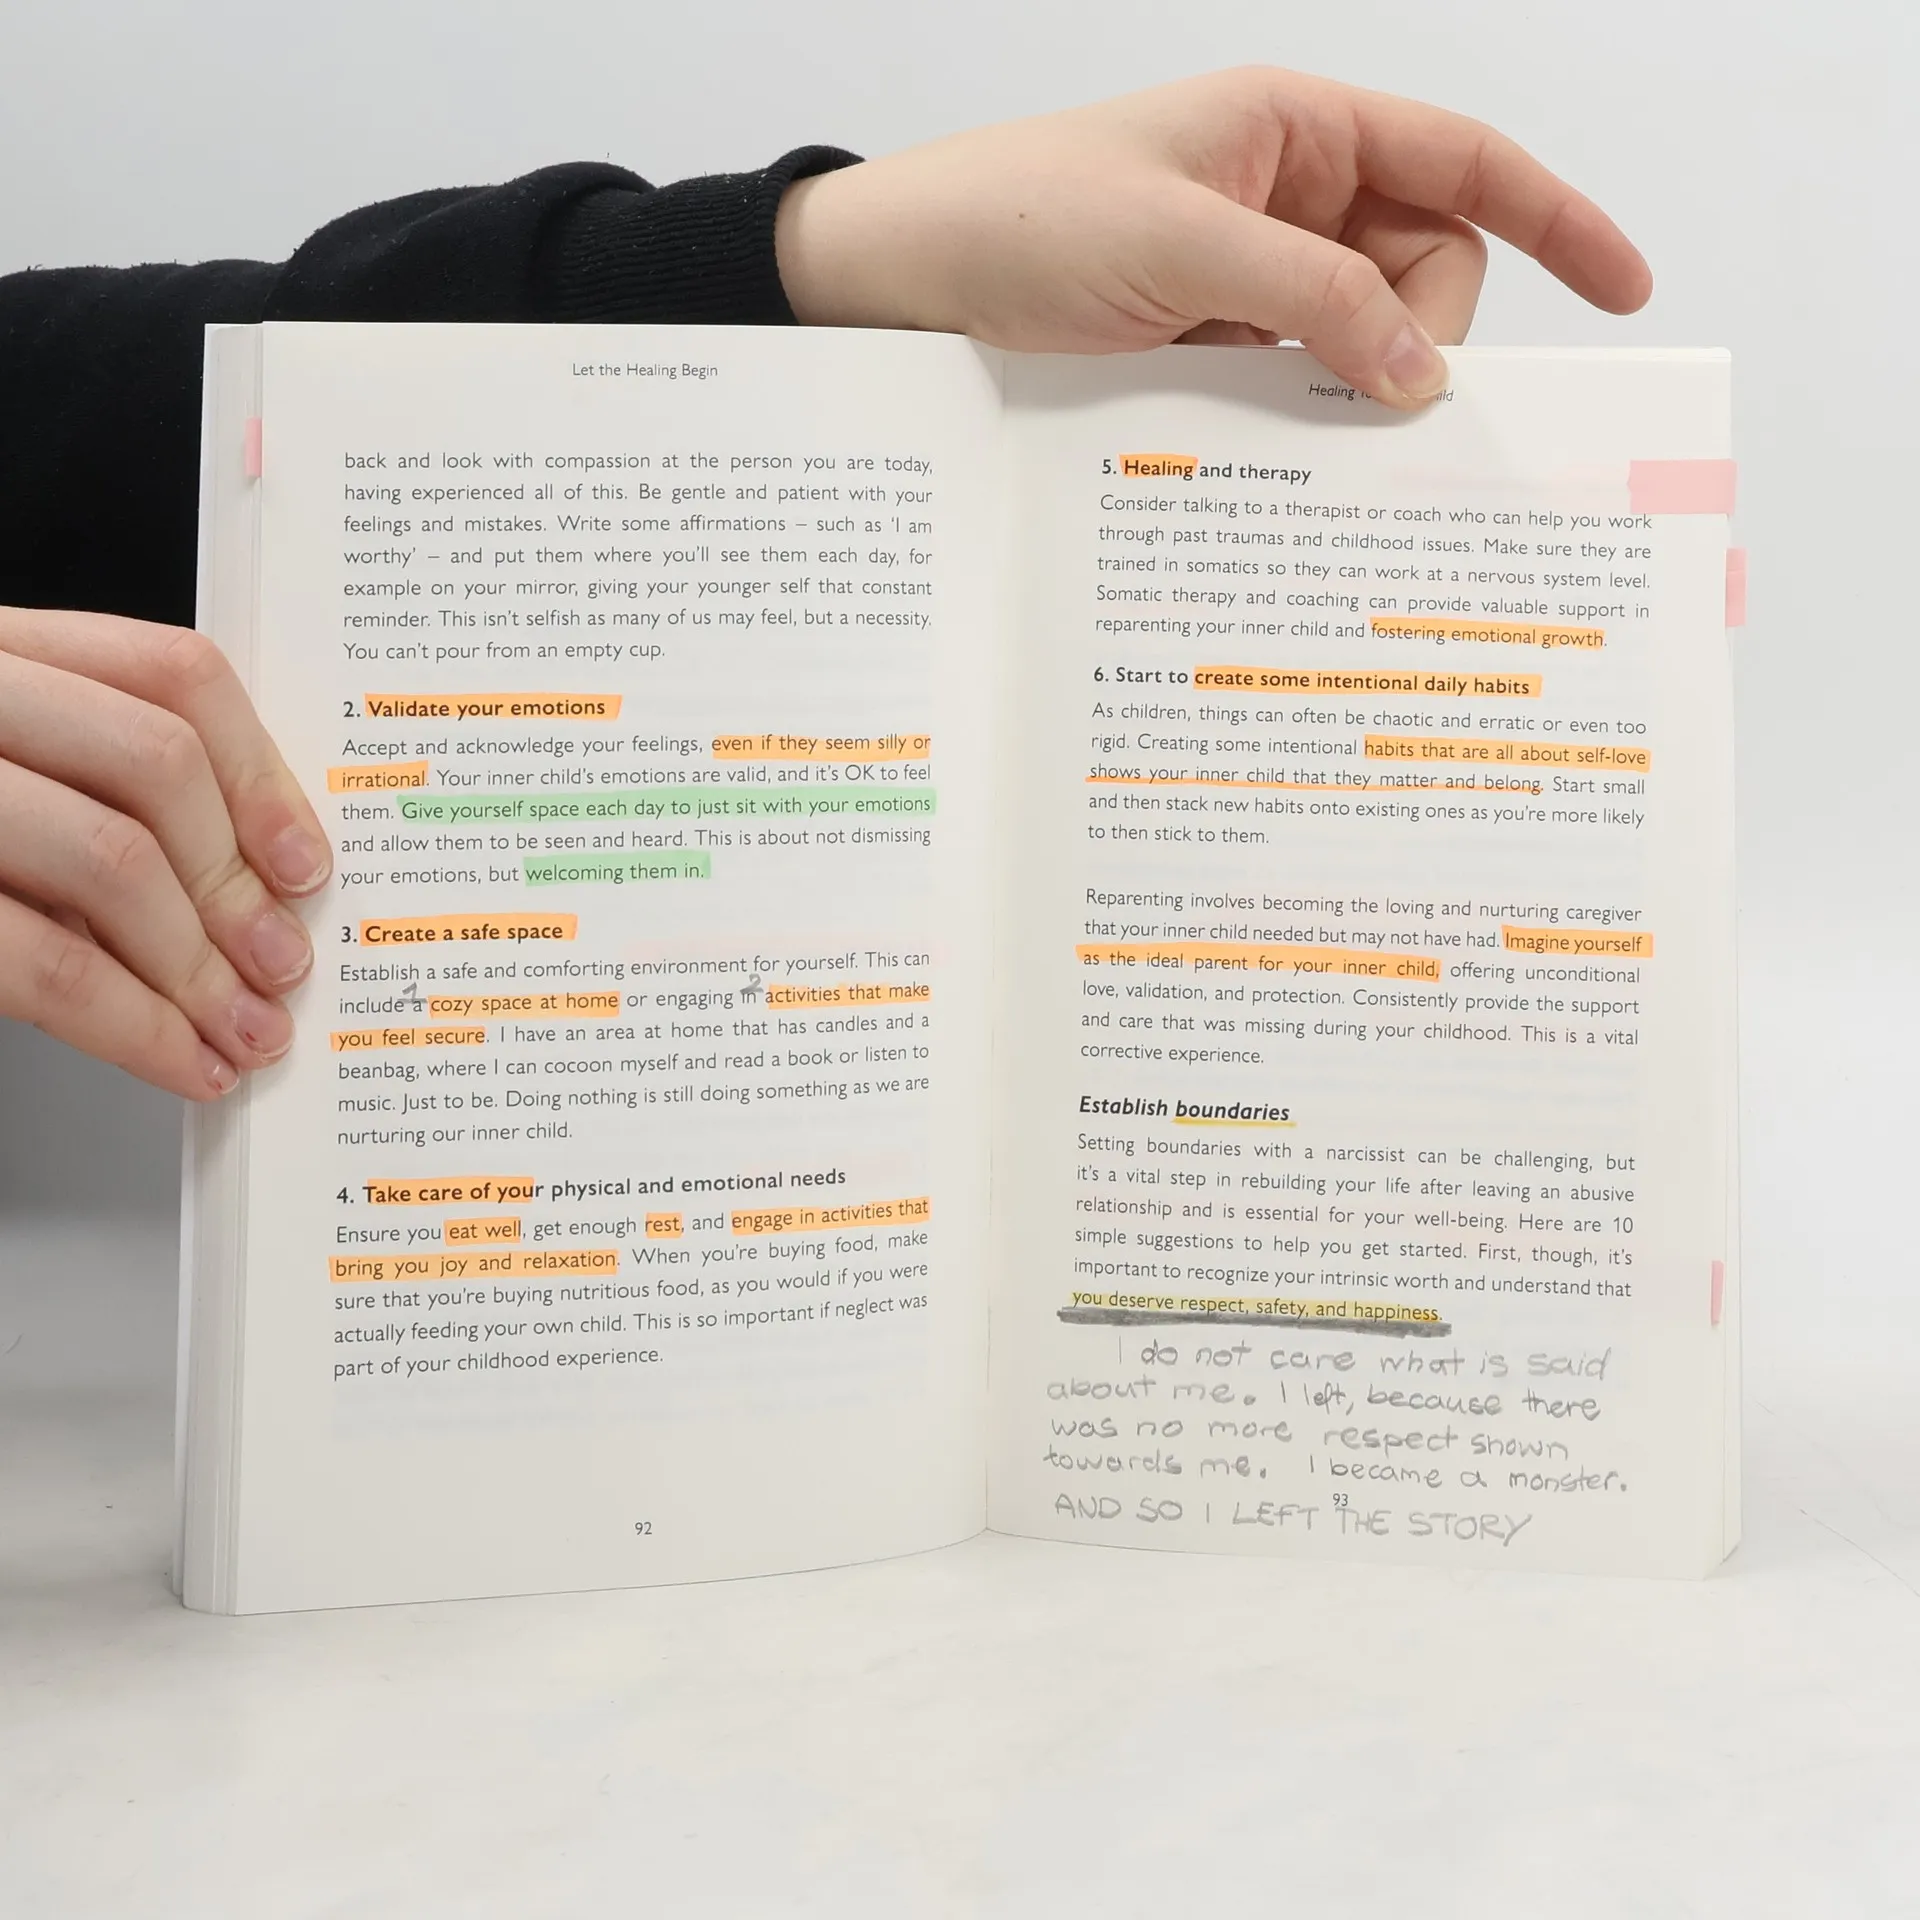 Let the Healing Begin
back and look with compassion at the person you are today,
having experienced all of this. Be gentle and patient with your
feelings and mistakes. Write some affirmations – such as ‘I am
worthy’ – and put them where you’ll see them each day, for
example on your mirror, giving your younger self that constant
reminder. This isn’t selfish as many of us may feel, but a necessity.
You can’t pour from an empty cup.
2. Validate your emotions
Accept and acknowledge your feelings, even if they seem silly or
irrational. Your inner child’s emotions are valid, and it’s OK to feel
them. Give yourself space each day to just sit with your emotions
and allow them to be seen and heard. This is about not dismissing
your emotions, but welcoming them in.
3. Create a safe space
Establish a safe and comforting environment for yourself. This can
1 2
include a cozy space at home or engaging in activities that make
you feel secure. I have an area at home that has candles and a
beanbag, where I can cocoon myself and read a book or listen to
music. Just to be. Doing nothing is still doing something as we are
nurturing our inner child.
4. Take care of your physical and emotional needs
Ensure you eat well, get enough rest, and engage in activities that
bring you joy and relaxation. When you’re buying food, make
sure that you’re buying nutritious food, as you would if you were
actually feeding your own child. This is so important if neglect was
part of your childhood experience.
92
Healing
5. Healing and therapy
Consider talking to a therapist or coach who can help you work
through past traumas and childhood issues. Make sure they are
trained in somatics so they can work at a nervous system level.
Somatic therapy and coaching can provide valuable support in
reparenting your inner child and fostering emotional growth.
6. Start to create some intentional daily habits
As children, things can often be chaotic and erratic or even too
rigid. Creating some intentional habits that are all about self-love
shows your inner child that they matter and belong. Start small
and then stack new habits onto existing ones as you’re more likely
to then stick to them.
Reparenting involves becoming the loving and nurturing caregiver
that your inner child needed but may not have had. Imagine yourself
as the ideal parent for your inner child, offering unconditional
love, validation, and protection. Consistently provide the support
and care that was missing during your childhood. This is a vital
corrective experience.
Establish boundaries
Setting boundaries with a narcissist can be challenging, but
it’s a vital step in rebuilding your life after leaving an abusive
relationship and is essential for your well-being. Here are 10
simple suggestions to help you get started. First, though, it’s
important to recognize your intrinsic worth and understand that
you deserve respect, safety, and happiness.
I do not care what is said
about me. I left, because there
was no more respect shown
towards me. I became a monster.
93
AND SO I LEFT THE STORY